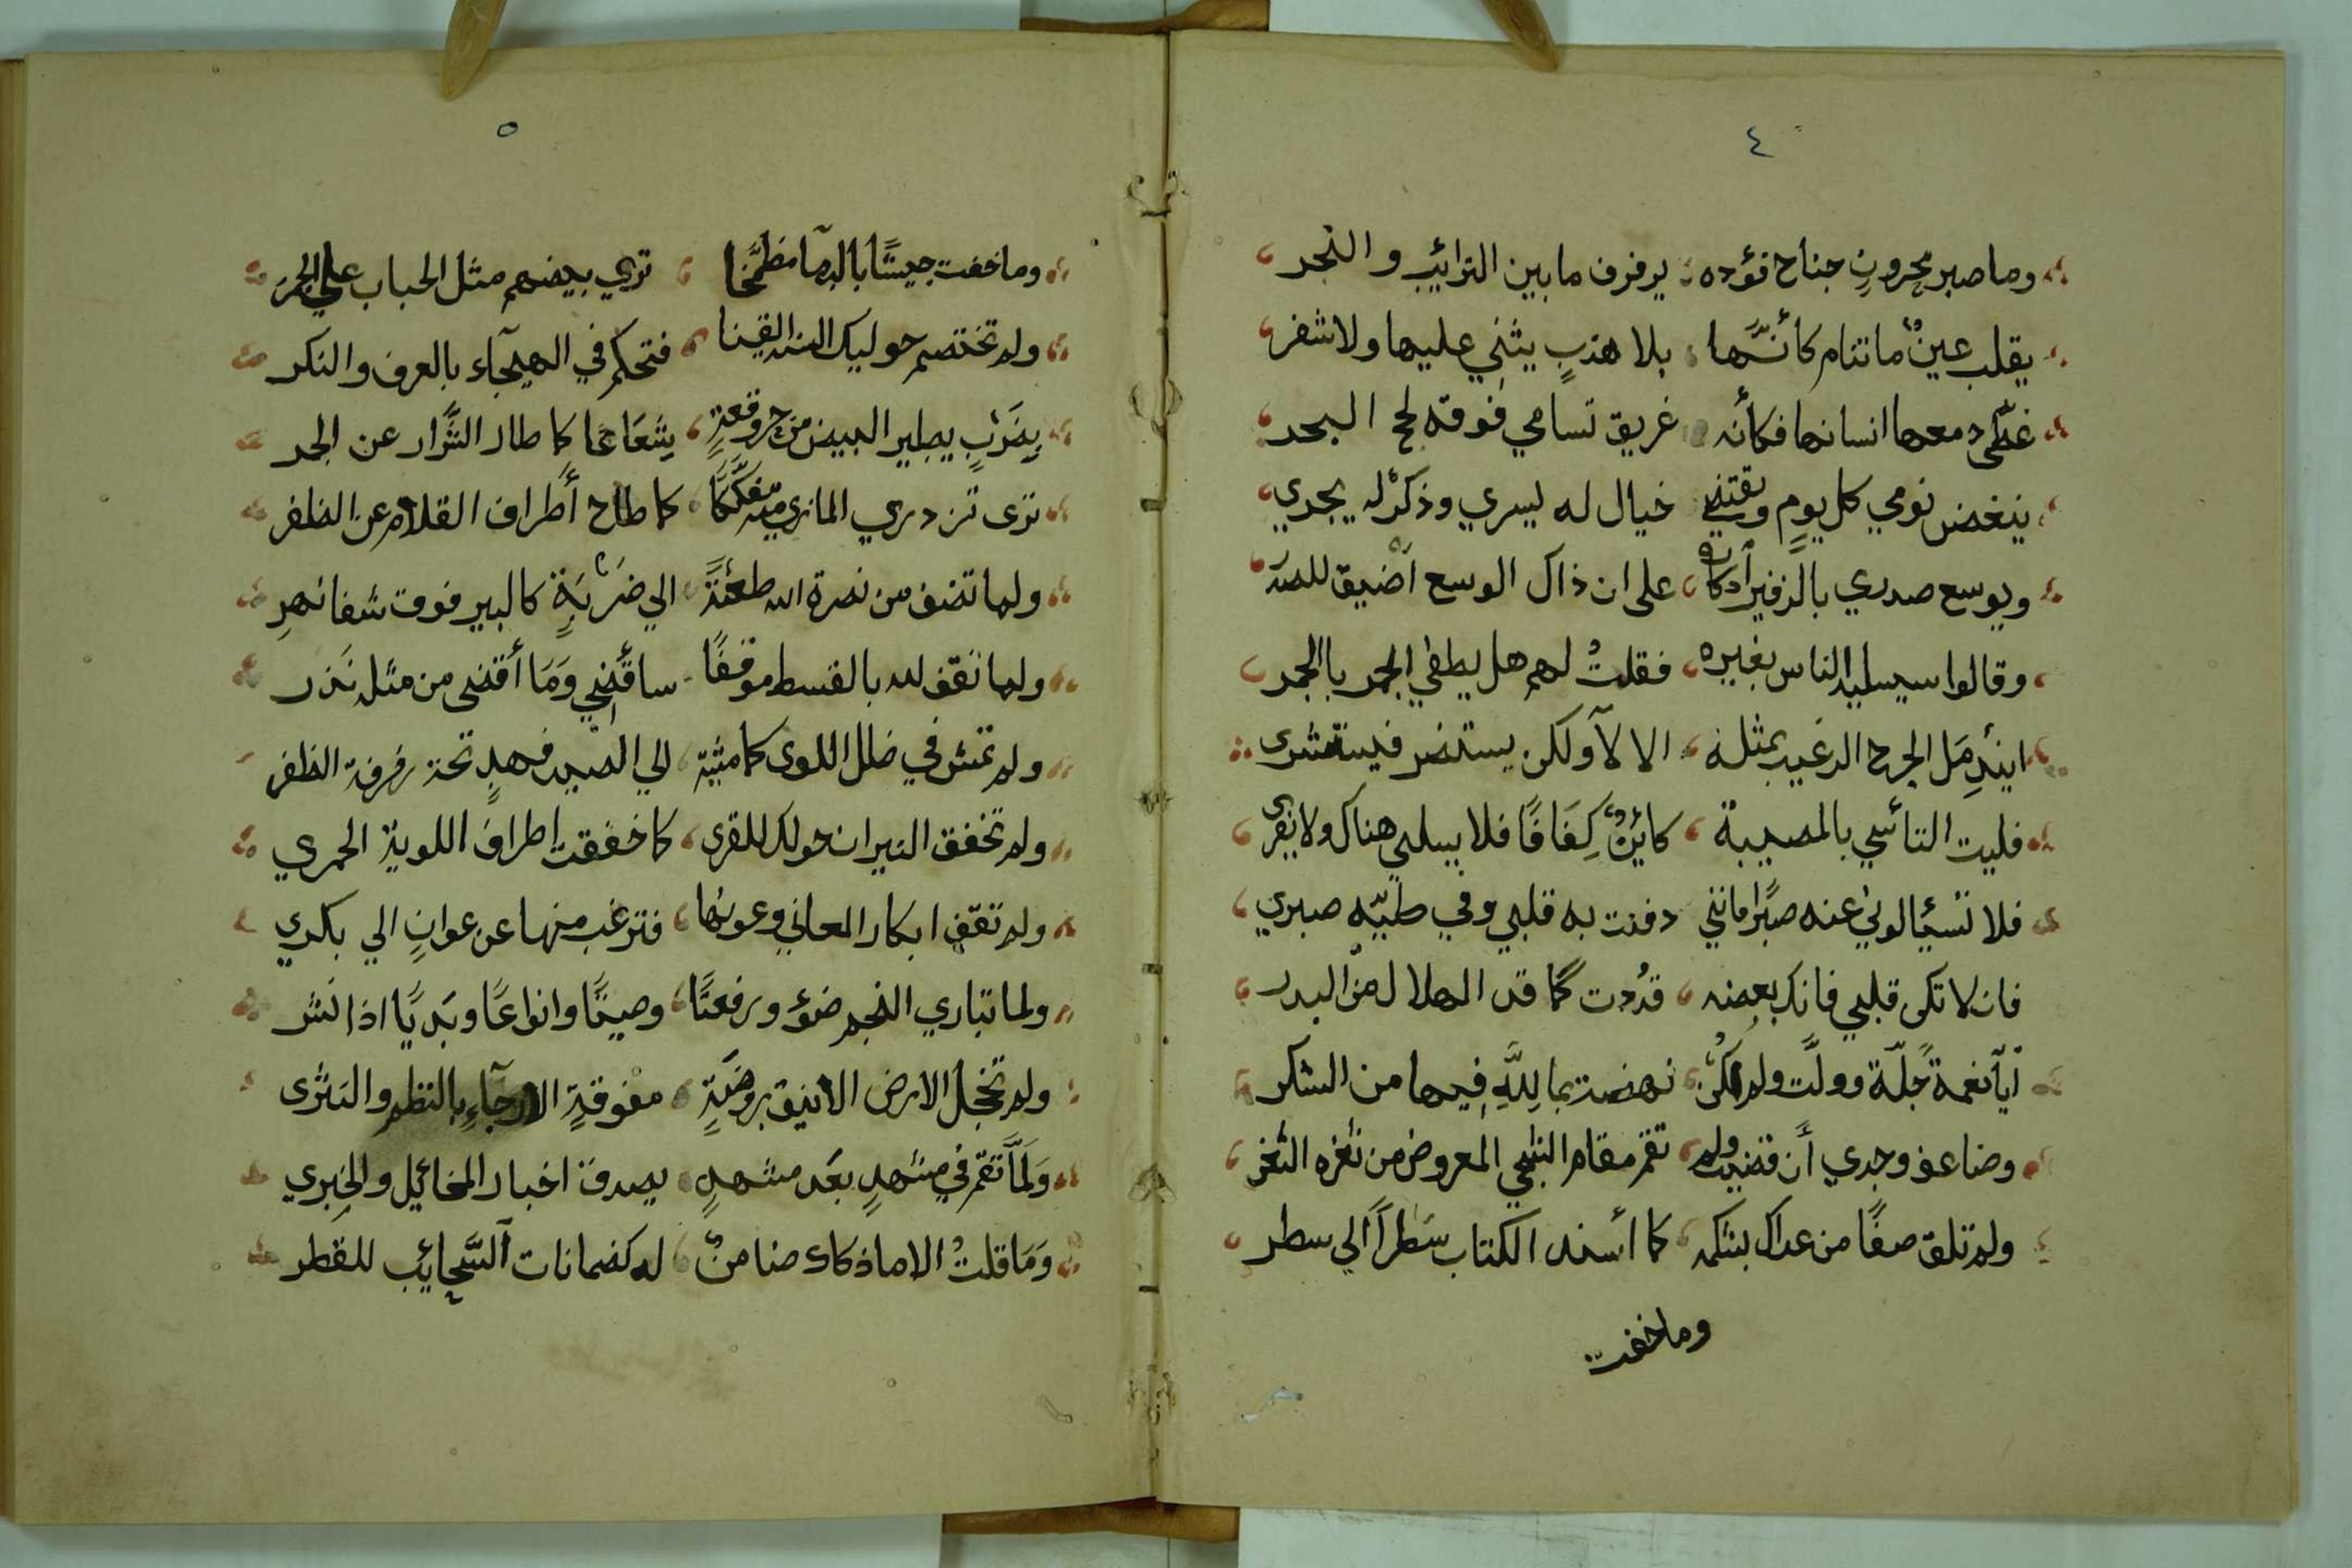 ٤
وما صبر محرونٍ جناح فؤده يرفرف ما بين الترائيب والنجر
يقلب عينٌ ما تنام كأنَّها بلا هذبٍ يثني عليها ولا شفر
غطّى دمعها انسانها فكأنه غريق تسامي فوقه لجج البحر
ينغض نومي كل يومٍ ويقتني خيال له ليسري وذكرٌ له يجدي
ويوسع صدري بالزفير أدكاره على ان ذاك الوسع أضيق للصدر
وقالوا سيسليه الناس بغيره فقلتُ لهم هل يطفي الجمر بالجمر
ايندِمَل الجرح الرغيب بمثله الا لا ولكن يستضر فيستشرى
فليت التائسي بالمصيبة كائنٌ كِفَافًا فلا يسلي هناك ولا يغرى
فلا تسئالوني عنه صبرًا فانني دفنت به قلبي وفي طيّه صبري
فان لا تكى قلبي فانك بعضه قدُدت كما قد الهلال من البدر
أيا نعمة جلّة وولّت ولم أكنْ نهضت بما لِلَّهِ فيها من الشكر
وضاعف وجدي أن قضيت ولم تقم مقام الشجي المعروض من ثغره الثغر
ولم تلق صفًا من عداك بشكه كما أسند الكتاب سَطراً الي سطر
وما خفت
٥
وما خفت جيشًا بالدما مضمَّخًا تري بيضهم مثل الحباب علي الجمر
ولم تختصم حوليك السنة القنا فتحكم في الهيجآء بالعرف والنكر
بِضَرْبٍ يطير البيض من حر وقعةٍ شعَاعًا كما طار الشَّرار عن الجمر
ترى تزدري الماذي منه مفكّكًا كما طاح أطراف القلام عن الظفر
ولما تضف من نصرة الله طعنةً الي ضَرْبَةٍ كالبير فوق شفا نهرِ
ولما تقف لله بالقسط موقفًا ساقضِي وَمَا أقضى من مثله نَذر
ولم تمش في ضلل اللوى كما مثية الي الصيد فهدٍ تحة رفرفة الظفر
ولم تخفق النيران حولك للقرى كما خفقت اطراف اللوية الحمري
ولم تقف ابكار المعاني وعونها فترغب منها عن عوانٍ الي بكري
ولما تباري النجم ضوٴ ورفعتًا وصيتًا وانواعًا وبَديًا اذا نشر
ولم تخجل الارض الانيق بروضَةٍ مفوقةٍ الارجآءِ بالنظم والنثرى
وَلمَّا تقم في مشهدٍ بعَد مشهدٍ يصدق اخبار المخائيل والخِبري
وَمَا قلتُ الا ما ذكاك ضامنٌ له كضمانات السَّحائيب للقطر